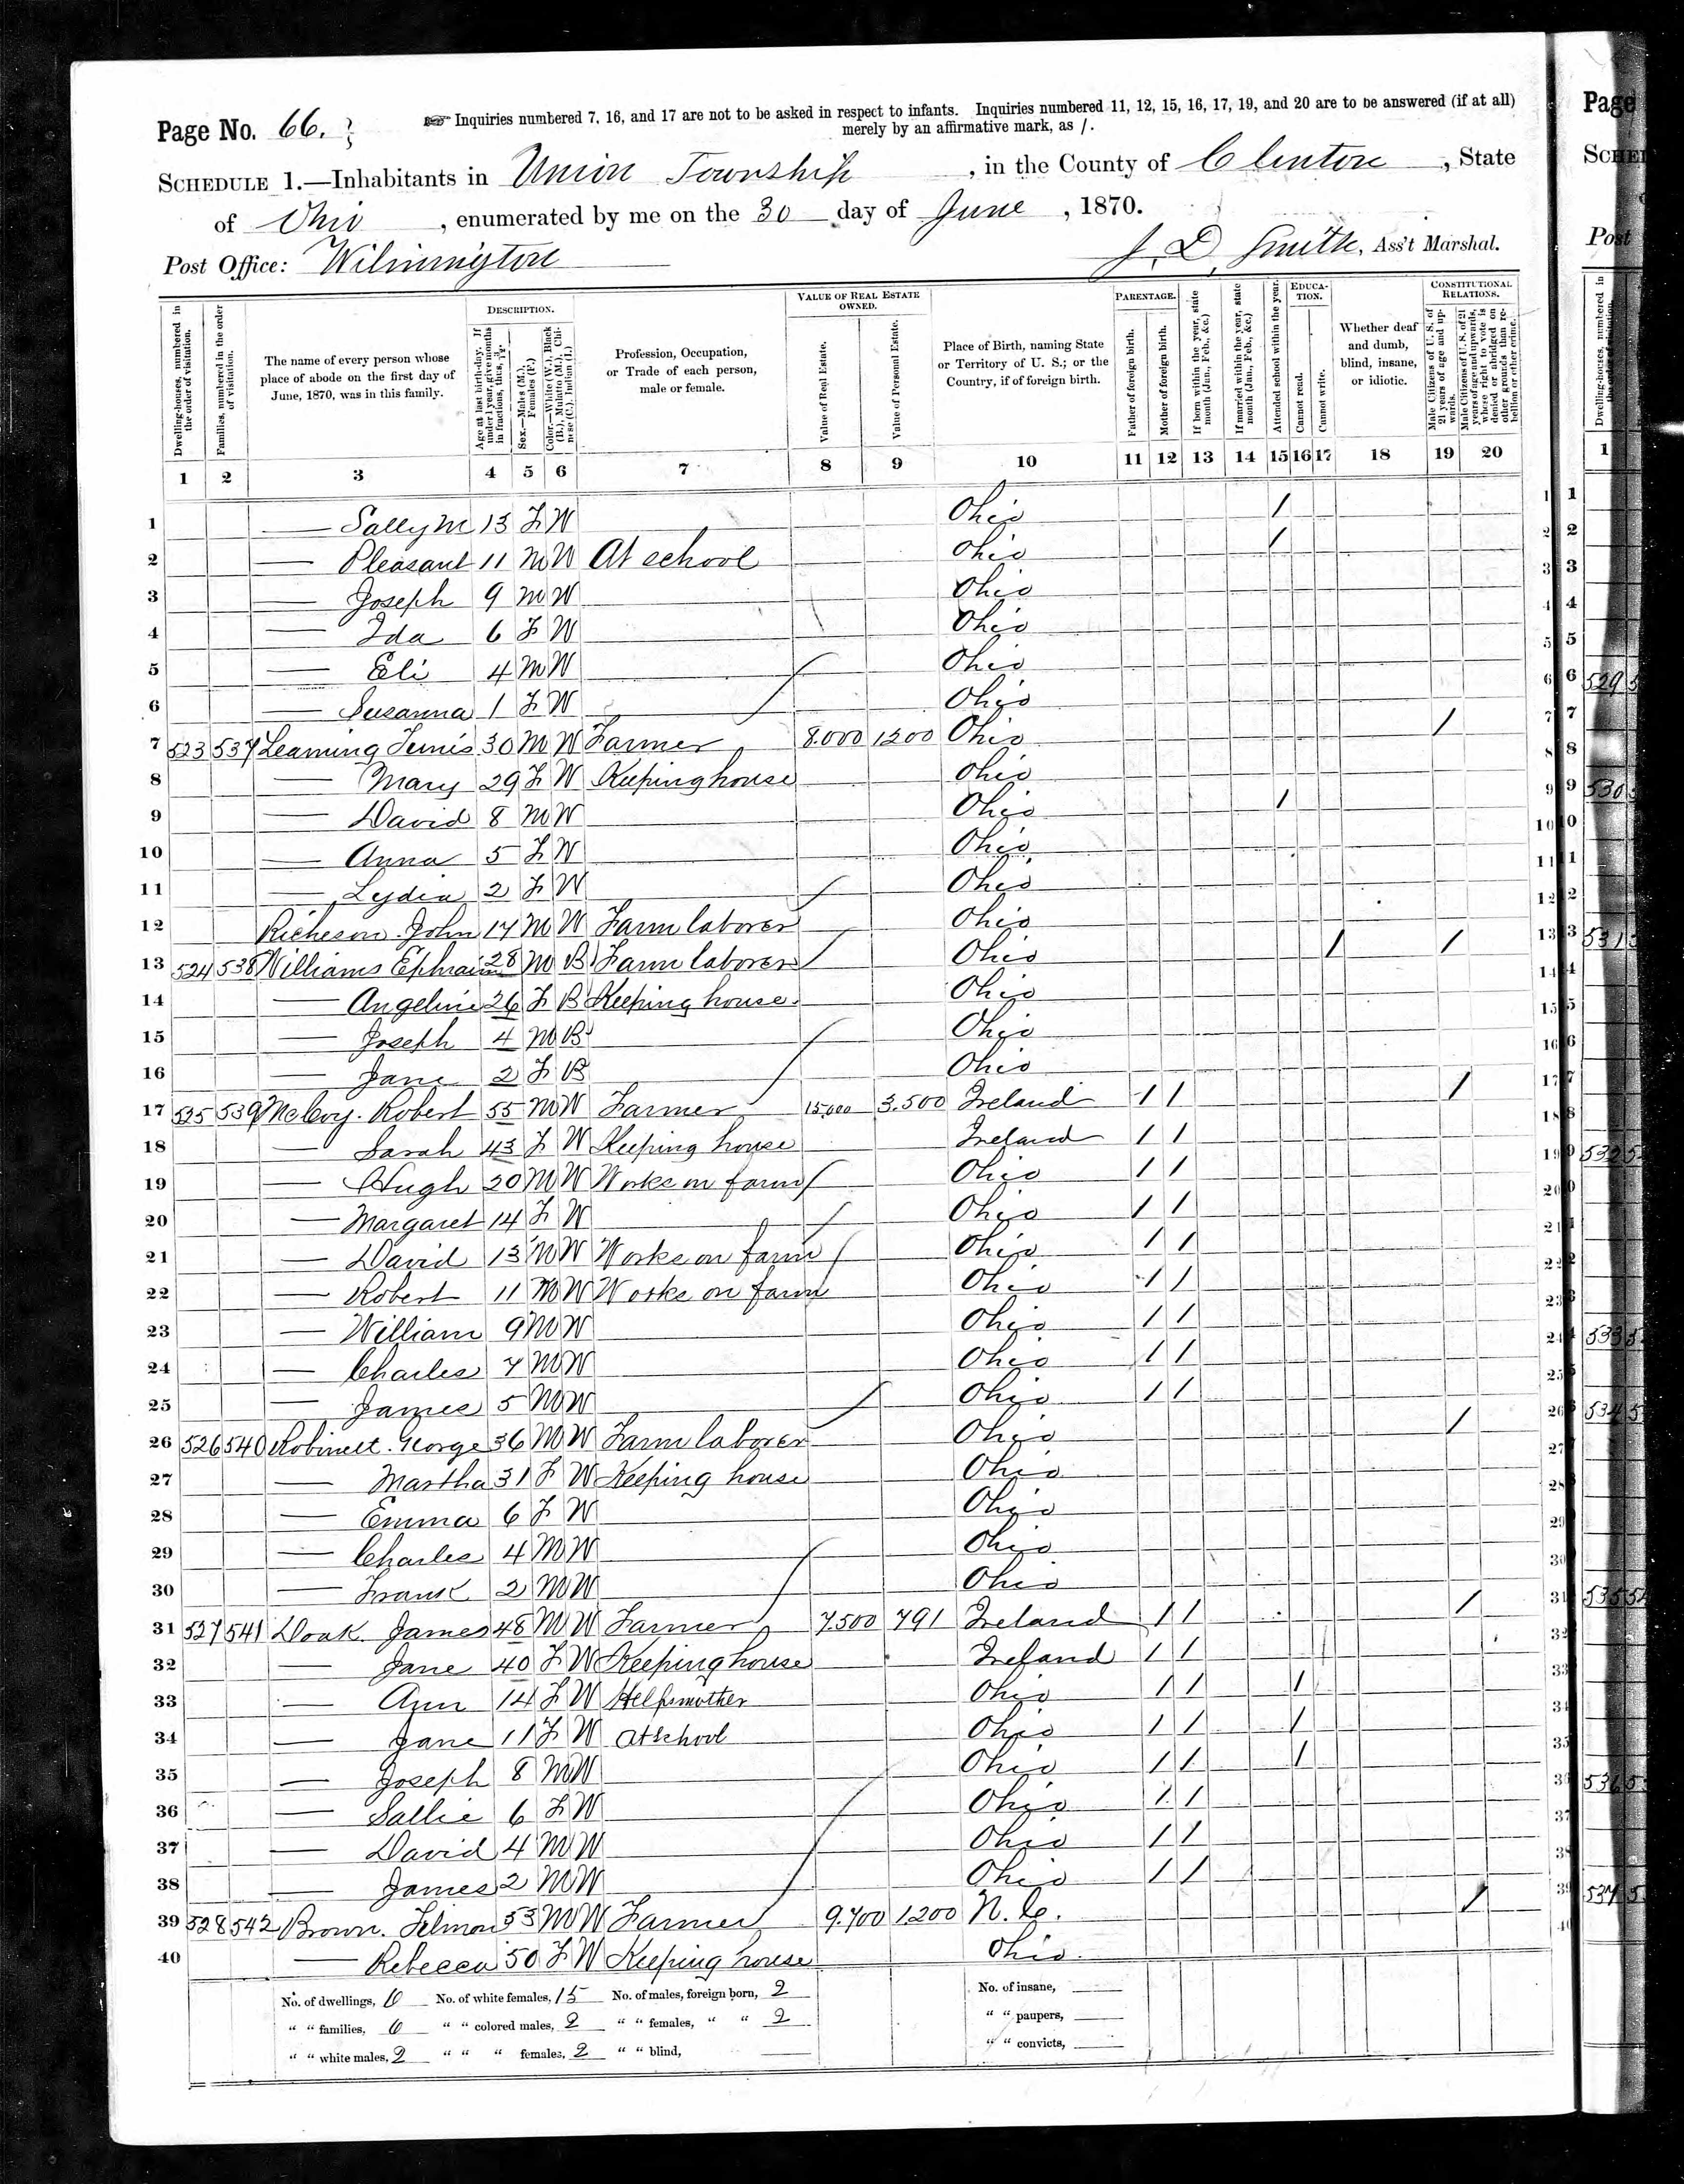 Page No. 66.
☞ Inquiries numbered 7, 16, and 17 are not to be asked in respect to infants. Inquiries numbered 11, 12, 15, 16, 17, 19, and 20 are to be answered (if at all)
merely by an affirmative mark, as /.
SCHEDULE 1.—Inhabitants in Union Township, in the County of Clinton, State
of Ohio, enumerated by me on the 30 day of June, 1870.
Post Office: Wilmington
J. D. Smith, Ass't Marshal.
Dwelling-houses, numbered in the order of visitation.
Families, numbered in the order of visitation.
The name of every person whose place of abode on the first day of June, 1870, was in this family.
DESCRIPTION.
Age at last birth-day. If under 1 year, give months in fractions, thus, 3/12.
Sex.—Males (M.), Females (F.)
Color.—White (W.), Black (B.), Mulatto (M.), Chinese (C.), Indian (I.)
Profession, Occupation, or Trade of each person, male or female.
VALUE OF REAL ESTATE OWNED.
Value of Real Estate.
Value of Personal Estate.
Place of Birth, naming State or Territory of U. S.; or the Country, if of foreign birth.
PARENTAGE.
Father of foreign birth.
Mother of foreign birth.
If born within the year, state month (Jan., Feb., &c.)
If married within the year, state month (Jan., Feb., &c.)
Attended school within the year.
EDUCATION.
Cannot read.
Cannot write.
Whether deaf and dumb, blind, insane, or idiotic.
CONSTITUTIONAL RELATIONS.
Male Citizens of U. S. of 21 years of age and upwards.
Male Citizens of U. S. of 21 years of age and upwards, where right to vote is denied or abridged on other grounds than rebellion or other crime.
1 2 3 4 5 6 7 8 9 10 11 12 13 14 15 16 17 18 19 20
1 — Sally M 13 F W Ohio / 1
2 — Pleasant 11 M W At school Ohio / 2
3 — Joseph 9 M W Ohio 3
4 — Ida 6 F W Ohio 4
5 — Eli 4 M W Ohio 5
6 — Susanna 1 F W Ohio 6
7 523 537 Leaming 30 M W Farmer 8.000 1200 Ohio / 7
8 — Mary 29 F W Keeping house Ohio 8
9 — David 8 M W Ohio / 9
10 — Anna 5 F W Ohio 10
11 — Lydia 2 F W Ohio 11
12 Richeson John 17 M W Farm laborer Ohio 12
13 524 538 Williams Ephraim 28 M B Farm laborer Ohio / / 13
14 — Angeline 26 F B Keeping house. Ohio 14
15 — Joseph 4 M B Ohio 15
16 — Jane 2 F B Ohio 16
17 525 539 McCoy. Robert 55 M W Farmer 15.000 3.500 Ireland / / / 17
18 — Sarah 43 F W Keeping house Ireland / / 18
19 — Hugh 20 M W Works on farm Ohio / / 19
20 — Margaret 14 F W Ohio / / 20
21 — David 13 M W Works on farm Ohio / / 21
22 — Robert 11 M W Works on farm Ohio / / 22
23 — William 9 M W Ohio / / 23
24 — Charles 7 M W Ohio / / 24
25 — James 5 M W Ohio / / 25
26 526 540 Robinett. George 36 M W Farm laborer Ohio / 26
27 — Martha 31 F W Keeping house Ohio 27
28 — Emma 6 F W Ohio 28
29 — Charles 4 M W Ohio 29
30 — Frank 2 M W Ohio 30
31 527 541 Doak. James 48 M W Farmer 7.500 791 Ireland / / / 31
32 — Jane 40 F W Keeping house Ireland / / 32
33 — Ann 14 F W Helps mother Ohio / / / 33
34 — Jane 11 F W At school Ohio / / / 34
35 — Joseph 8 M W Ohio / / / 35
36 — Sallie 6 F W Ohio / / 36
37 — David 4 M W Ohio / / 37
38 — James 2 M W Ohio / / 38
39 528 542 Brown. 53 M W Farmer 9.700 1200 N. C. / 39
40 — Rebecca 50 F W Keeping house Ohio 40
No. of dwellings, 6 No. of white females, 15 No. of males, foreign born, 2 No. of insane,
" " families, 6 " " colored males, 2 " " females, " " 2 " " paupers,
" " white males, " " " females, 2 " " blind, " " convicts,
Page
Post
1
529
530
531
532
533
534
535
536
537